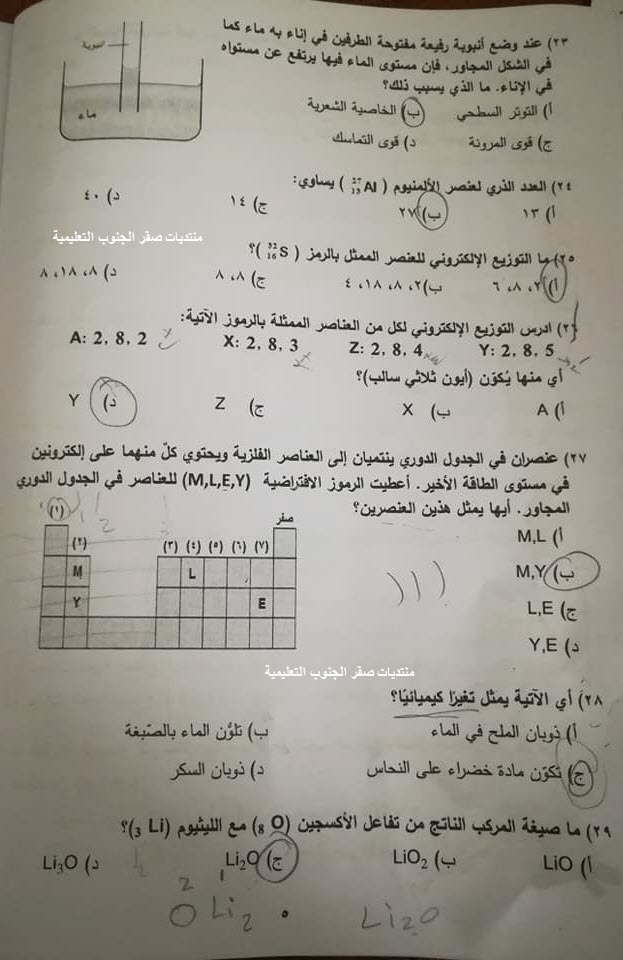 ٢٣) عند وضع أنبوبة رفيعة مفتوحة الطرفين في إناء به ماء كما
في الشكل المجاور، فإن مستوى الماء فيها يرتفع عن مستواه
في الإناء. ما الذي يسبب ذلك؟
أنبوبة
ماء
أ) التوتر السطحي ب) الخاصية الشعرية
ج) قوى المرونة د) قوى التماسك
٢٤) العدد الذري لعنصر الألمنيوم (²⁷₁₃Al) يساوي:
أ) ١٣ ب) ٢٧ ج) ١٤ د) ٤٠
منتديات صقر الجنوب التعليمية
٢٥) ما التوزيع الإلكتروني للعنصر الممثل بالرمز (³²₁₆S)؟
أ) ٢، ٨، ٦ ب) ٢، ٨، ١٨، ٤ ج) ٨، ٨ د) ٨، ١٨، ٨
٢٦) ادرس التوزيع الإلكتروني لكل من العناصر الممثلة بالرموز الآتية:
A: 2, 8, 2 X: 2, 8, 3 Z: 2, 8, 4 Y: 2, 8, 5
أي منها يُكوّن (أيون ثلاثي سالب)؟
أ) A ب) X ج) Z د) Y
٢٧) عنصران في الجدول الدوري ينتميان إلى العناصر الفلزية ويحتوي كلّ منهما على إلكترونين
في مستوى الطاقة الأخير. أعطيت الرموز الافتراضية (M,L,E,Y) للعناصر في الجدول الدوري
المجاور. أيها يمثل هذين العنصرين؟
أ) M,L
ب) M,Y
ج) L,E
د) Y,E
(١) صفر
(٢) (٣) (٤) (٥) (٦) (٧)
M L
Y E
منتديات صقر الجنوب التعليمية
٢٨) أي الآتية يمثل تغيرًا كيميائيًا؟
أ) ذوبان الملح في الماء ب) تلوُّن الماء بالصّبغة
ج) تكوّن مادة خضراء على النحاس د) ذوبان السكر
٢٩) ما صيغة المركب الناتج من تفاعل الأكسجين (₈O) مع الليثيوم (₃Li)؟
أ) LiO ب) LiO₂ ج) Li₂O د) Li₃O
O Li₂ Li₂O